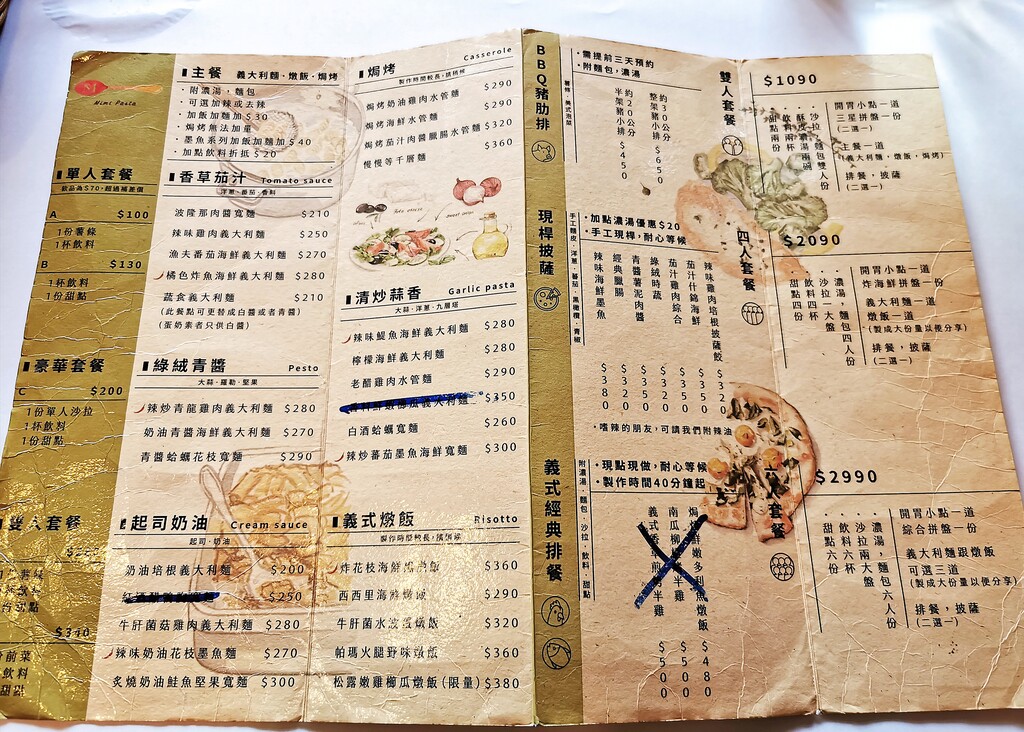 Mimi Pasta
單人套餐
飲品為$70,超過補差價
A $100
1份薯條
1杯飲料
B $130
1杯飲料
1份甜點
豪華套餐
C $200
1份單人沙拉
1杯飲料
1份甜點
雙人套餐
$340
前菜
飲料
甜甜
主餐 義大利麵·燉飯·焗烤
·附濃湯,麵包
·可選加辣或去辣
·加飯加麵加$30
·焗烤無法加量
·墨魚系列加飯加麵加$40
·加點飲料折抵$20
香草茄汁 Tomato sauce
洋蔥·番茄·香料
波隆那肉醬寬麵 $210
辣味雞肉義大利麵 $250
漁夫番茄海鮮義大利麵 $270
橘色炸魚海鮮義大利麵 $280
蔬食義大利麵 $210
(此餐點可更替成白醬或者青醬)
(蛋奶素者只供白醬)
綠絨青醬 Pesto
大蒜·羅勒·堅果
辣炒青龍雞肉義大利麵 $280
奶油青醬海鮮義大利麵 $270
青醬蛤蠣花枝寬麵 $290
起司奶油 Cream sauce
起司·奶油
奶油培根義大利麵 $200
$250
牛肝菌菇雞肉義大利麵 $280
辣味奶油花枝墨魚麵 $270
炙燒奶油鮭魚堅果寬麵 $300
焗烤 Casserole
製作時間較長,請稍候
焗烤奶油雞肉水管麵 $290
焗烤海鮮水管麵 $290
焗烤茄汁肉醬臘腸水管麵 $320
慢慢等千層麵 $360
清炒蒜香 Garlic pasta
大蒜·洋蔥·九層塔
辣味鯷魚海鮮義大利麵 $280
檸檬海鮮義大利麵 $280
老醋雞肉水管麵 $290
$350
白酒蛤蠣寬麵 $260
辣炒蕃茄墨魚海鮮寬麵 $300
義式燉飯 Risotto
製作時間較長,請稍候
炸花枝海鮮燉飯 $360
西西里海鮮燉飯 $290
牛肝菌水波蛋燉飯 $320
帕瑪火腿野味燉飯 $360
松露嫩雞櫛瓜燉飯(限量) $380
BBQ豬肋排
薯條,美式泡菜
·需提前三天預約
·附麵包,濃湯
整架豬小排 約30公分 $650
半架豬小排 約20公分 $450
現桿披薩
手工麵皮·洋蔥·番茄·黑橄欖·青椒
·加點濃湯優惠$20
·手工現桿,耐心等候
辣味雞肉培根披薩餃 $320
茄汁什錦海鮮
茄汁雞肉綜合
綠絨時蔬
青醬薯泥肉醬
經典臘腸
辣味海鮮墨魚 $380
·嗜辣的朋友,可請我們附辣油
義式經典排餐
附濃湯·麵包·沙拉·飲料·甜點
·現點現做,耐心等候
·製作時間40分鐘起
$480
$500
$500
雙人套餐
$1090
開胃小點一道
三星拼盤一份
(二選一)
主餐一道
(義大利麵,燉飯,焗烤)
排餐,披薩
(二選一)
沙拉,麵包雙人份
酥皮濃湯兩碗
飲料兩杯
甜點兩份
四人套餐
$2090
開胃小點一道
炸海鮮拼盤一份
義大利麵一道
燉飯一道
(製成大份量以便分享)
排餐,披薩
(二選一)
濃湯,麵包四人份
沙拉一大盤
飲料四杯
甜點四份
人套餐
$2990
開胃小點一道
綜合拼盤一份
義大利麵跟燉飯
可選三道
(製成大份量以便分享)
排餐,披薩
(二選一)
濃湯,麵包六人份
沙拉兩大盤
飲料六杯
甜點六份